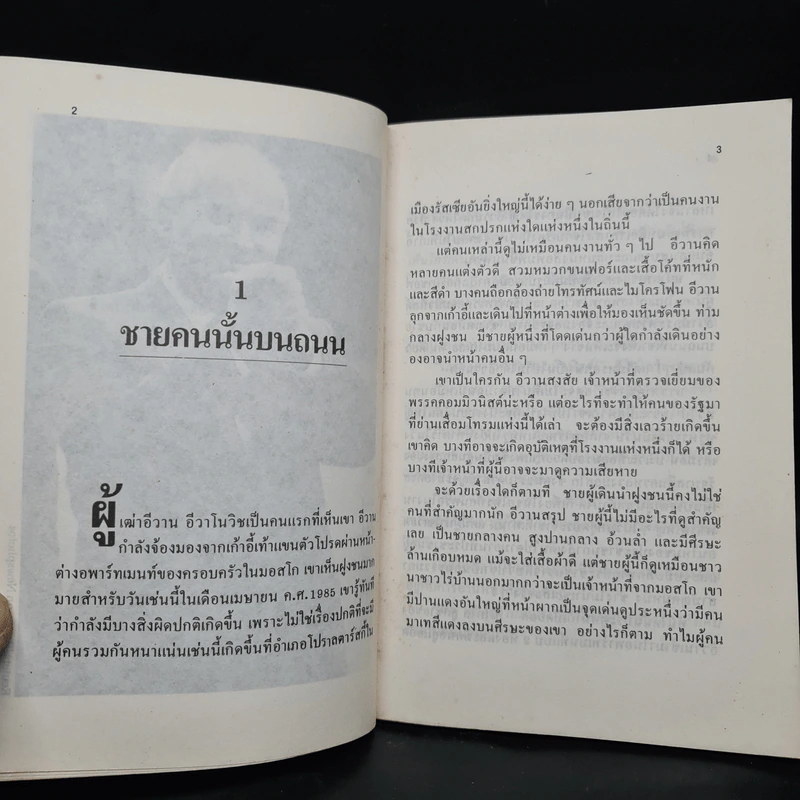 2
1
ชายคนนั้นบนถนน
ผู้เฒ่าอีวาน อีวาโนวิชเป็นคนแรกที่เห็นเขา อีวาน
กำลังจ้องมองจากเก้าอี้เท้าแขนตัวโปรดผ่านหน้า-
ต่างอพาร์ทเมนท์ของครอบครัวในมอสโก เขาเห็นฝูงชนมาก
มายสำหรับวันเช่นนี้ในเดือนเมษายน ค.ศ.1985 เขารู้ทันที
ว่ากำลังมีบางสิ่งผิดปกติเกิดขึ้น เพราะไม่ใช่เรื่องปกติที่จะมี
ผู้คนรวมกันหนาแน่นเช่นนี้เกิดขึ้นที่อำเภอโปราลตาร์สกี้ใน
3
เมืองรัสเซียอันยิ่งใหญ่นี้ได้ง่าย ๆ นอกเสียจากว่าเป็นคนงาน
ในโรงงานสกปรกแห่งใดแห่งหนึ่งในถิ่นนี้
แต่คนเหล่านี้ดูไม่เหมือนคนงานทั่ว ๆ ไป อีวานคิด
หลายคนแต่งตัวดี สวมหมวกขนเฟอร์และเสื้อโค้ทที่หนัก
และสีดำ บางคนถือกล้องถ่ายโทรทัศน์และไมโครโฟน อีวาน
ลุกจากเก้าอี้และเดินไปที่หน้าต่างเพื่อให้มองเห็นชัดขึ้น ท่าม
กลางฝูงชน มีชายผู้หนึ่งที่โดดเด่นกว่าผู้ใดกำลังเดินอย่าง
องอาจนำหน้าคนอื่น ๆ
เขาเป็นใครกัน อีวานสงสัย เจ้าหน้าที่ตรวจเยี่ยมของ
พรรคคอมมิวนิสต์น่ะหรือ แต่อะไรที่จะทำให้คนของรัฐมา
ที่ย่านเสื่อมโทรมแห่งนี้ได้เล่า จะต้องมีสิ่งเลวร้ายเกิดขึ้น
เขาคิด บางทีอาจจะเกิดอุบัติเหตุที่โรงงานแห่งหนึ่งก็ได้ หรือ
บางทีเจ้าหน้าที่ผู้นี้อาจจะมาดูความเสียหาย
จะด้วยเรื่องใดก็ตามที ชายผู้เดินนำฝูงชนนี้คงไม่ใช่
คนที่สำคัญมากนัก อีวานสรุป ชายผู้นี้ไม่มีอะไรที่ดูสำคัญ
เลย เป็นชายกลางคน สูงปานกลาง อ้วนล่ำ และมีศีรษะ
ล้านเกือบหมด แม้จะใส่เสื้อผ้าดี แต่ชายผู้นี้ก็ดูเหมือนชาว
นาชาวไร่บ้านนอกมากกว่าจะเป็นเจ้าหน้าที่จากมอสโก เขา
มีปานแดงอันใหญ่ที่หน้าผากเป็นจุดเด่นดูประหนึ่งว่ามีคน
มาเทสีแดงลงบนศีรษะของเขา อย่างไรก็ตาม ทำไมผู้คน